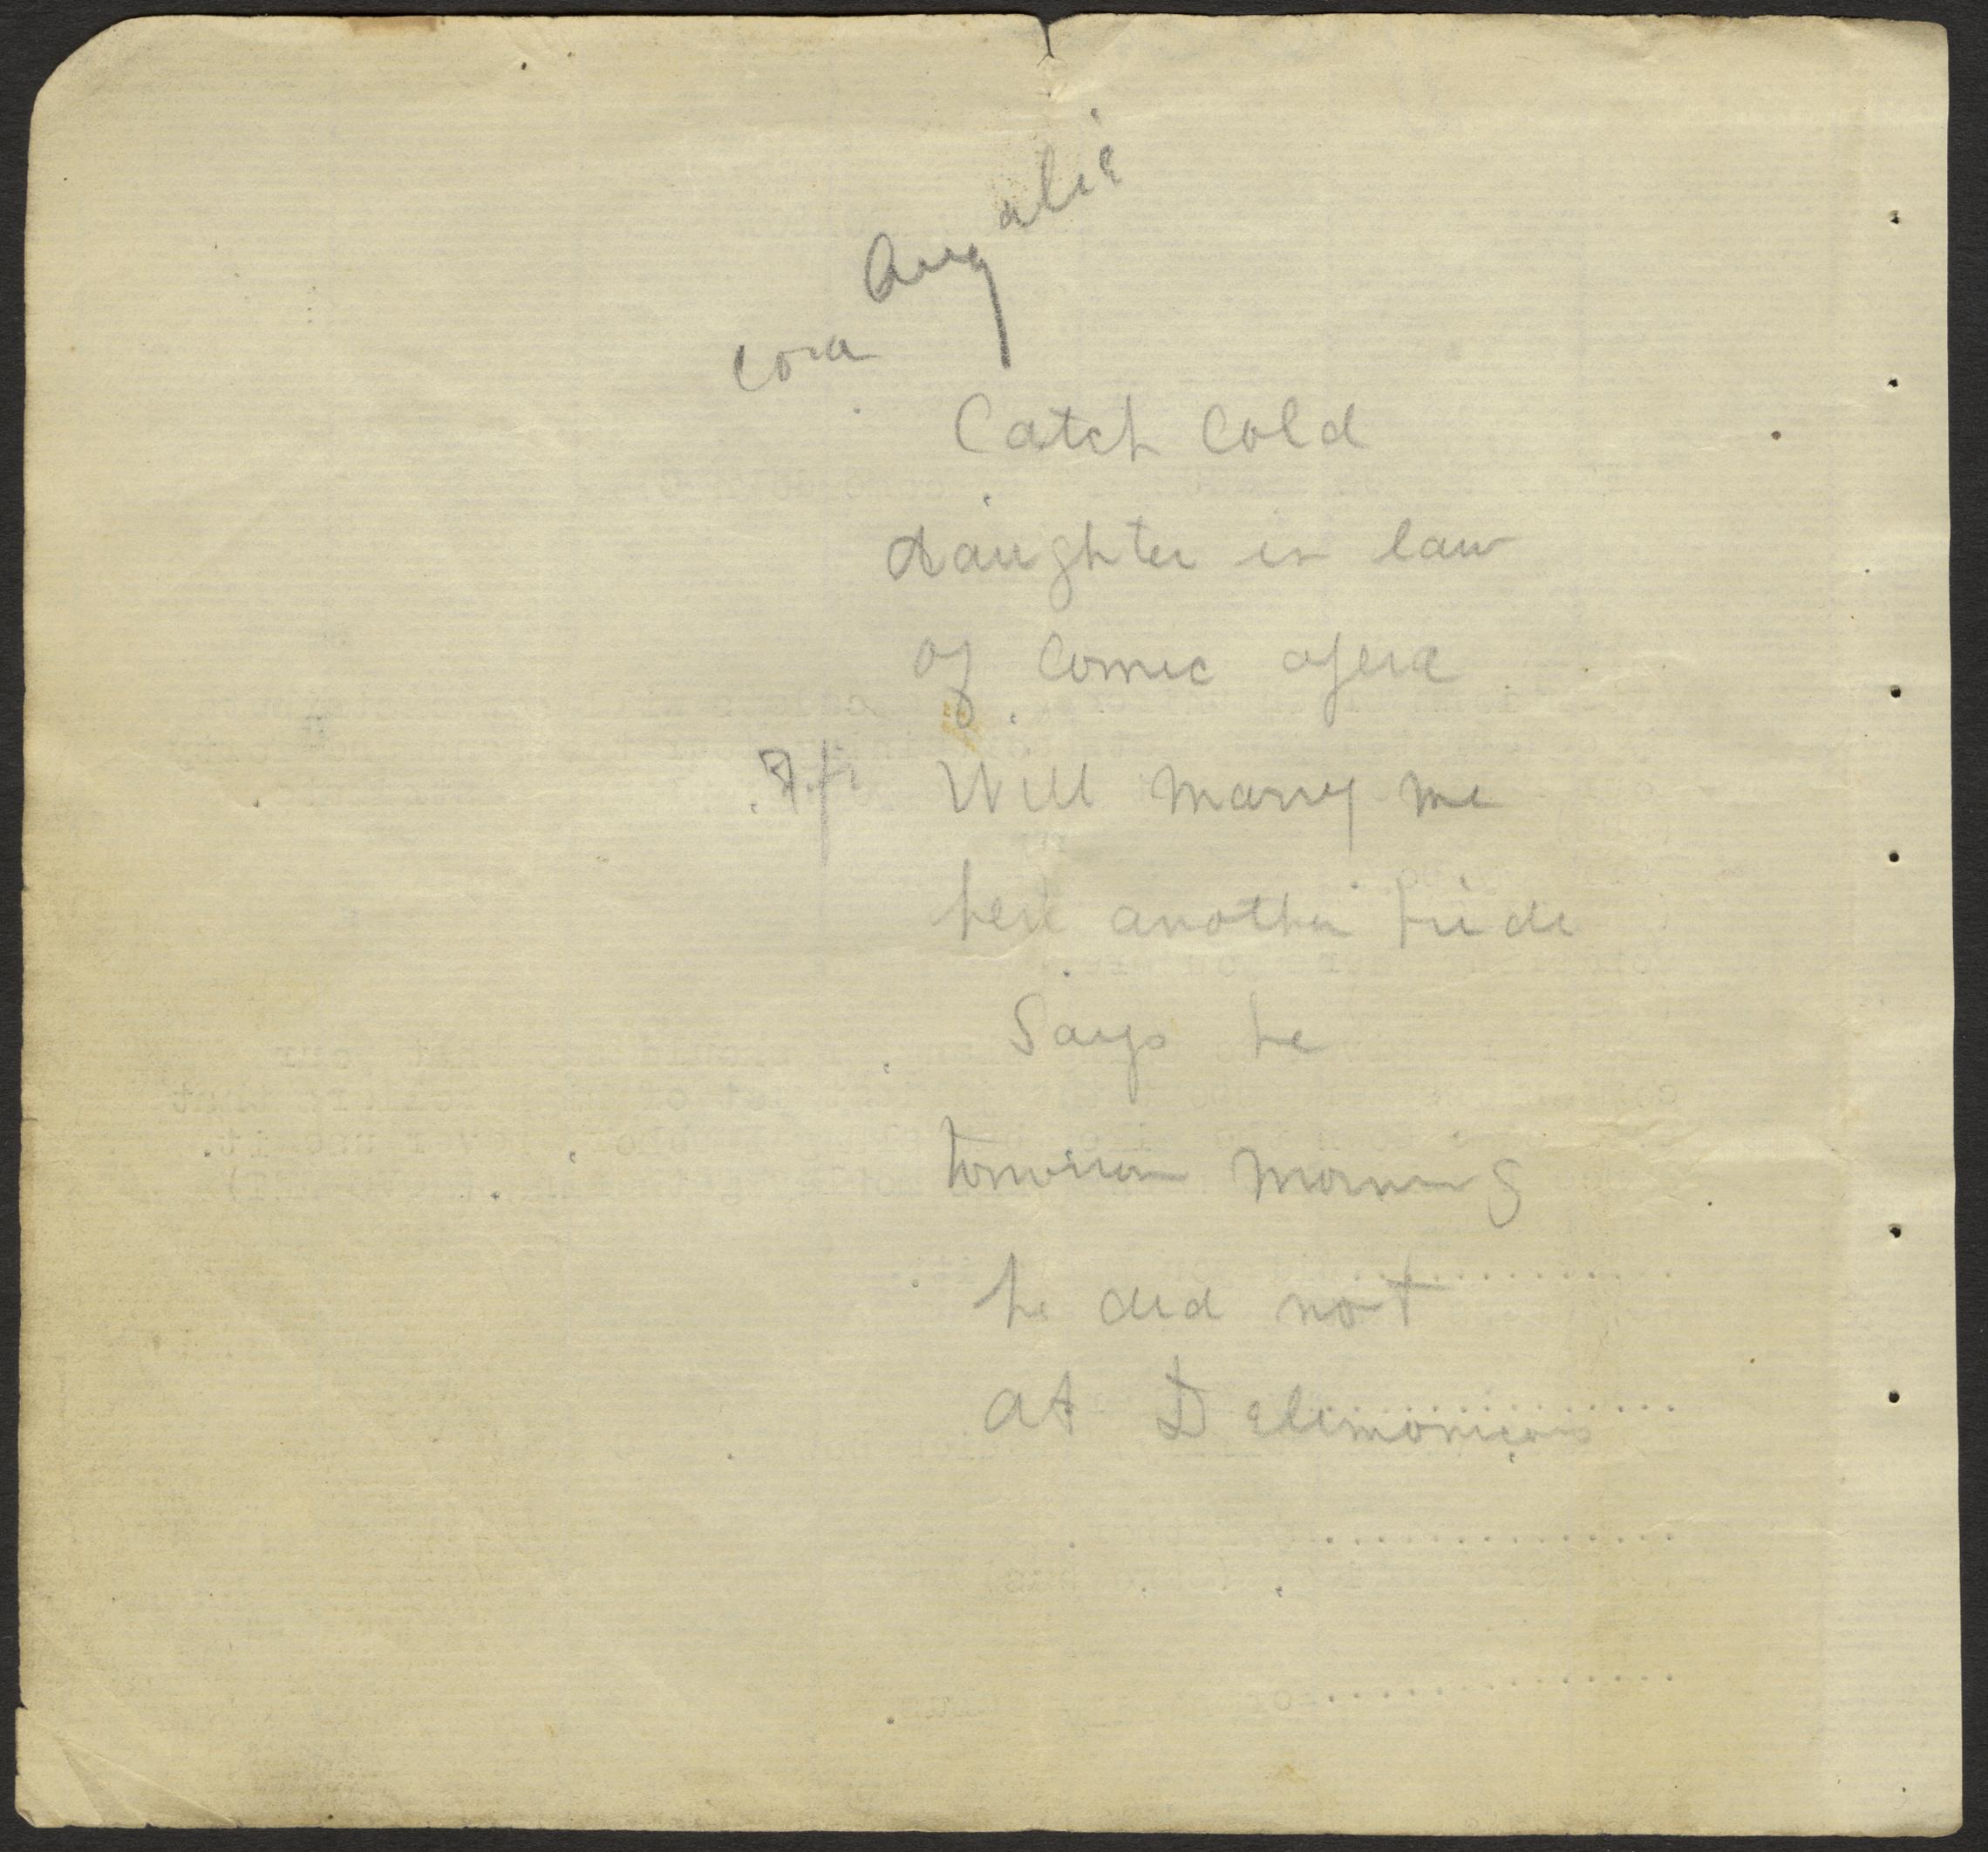 alie
Aug
Cora
Catch Cold
daughter in law
of Comic opera
Will marry me
here another bride
Says he
tomorrow morning
he did not
at Delimonicos